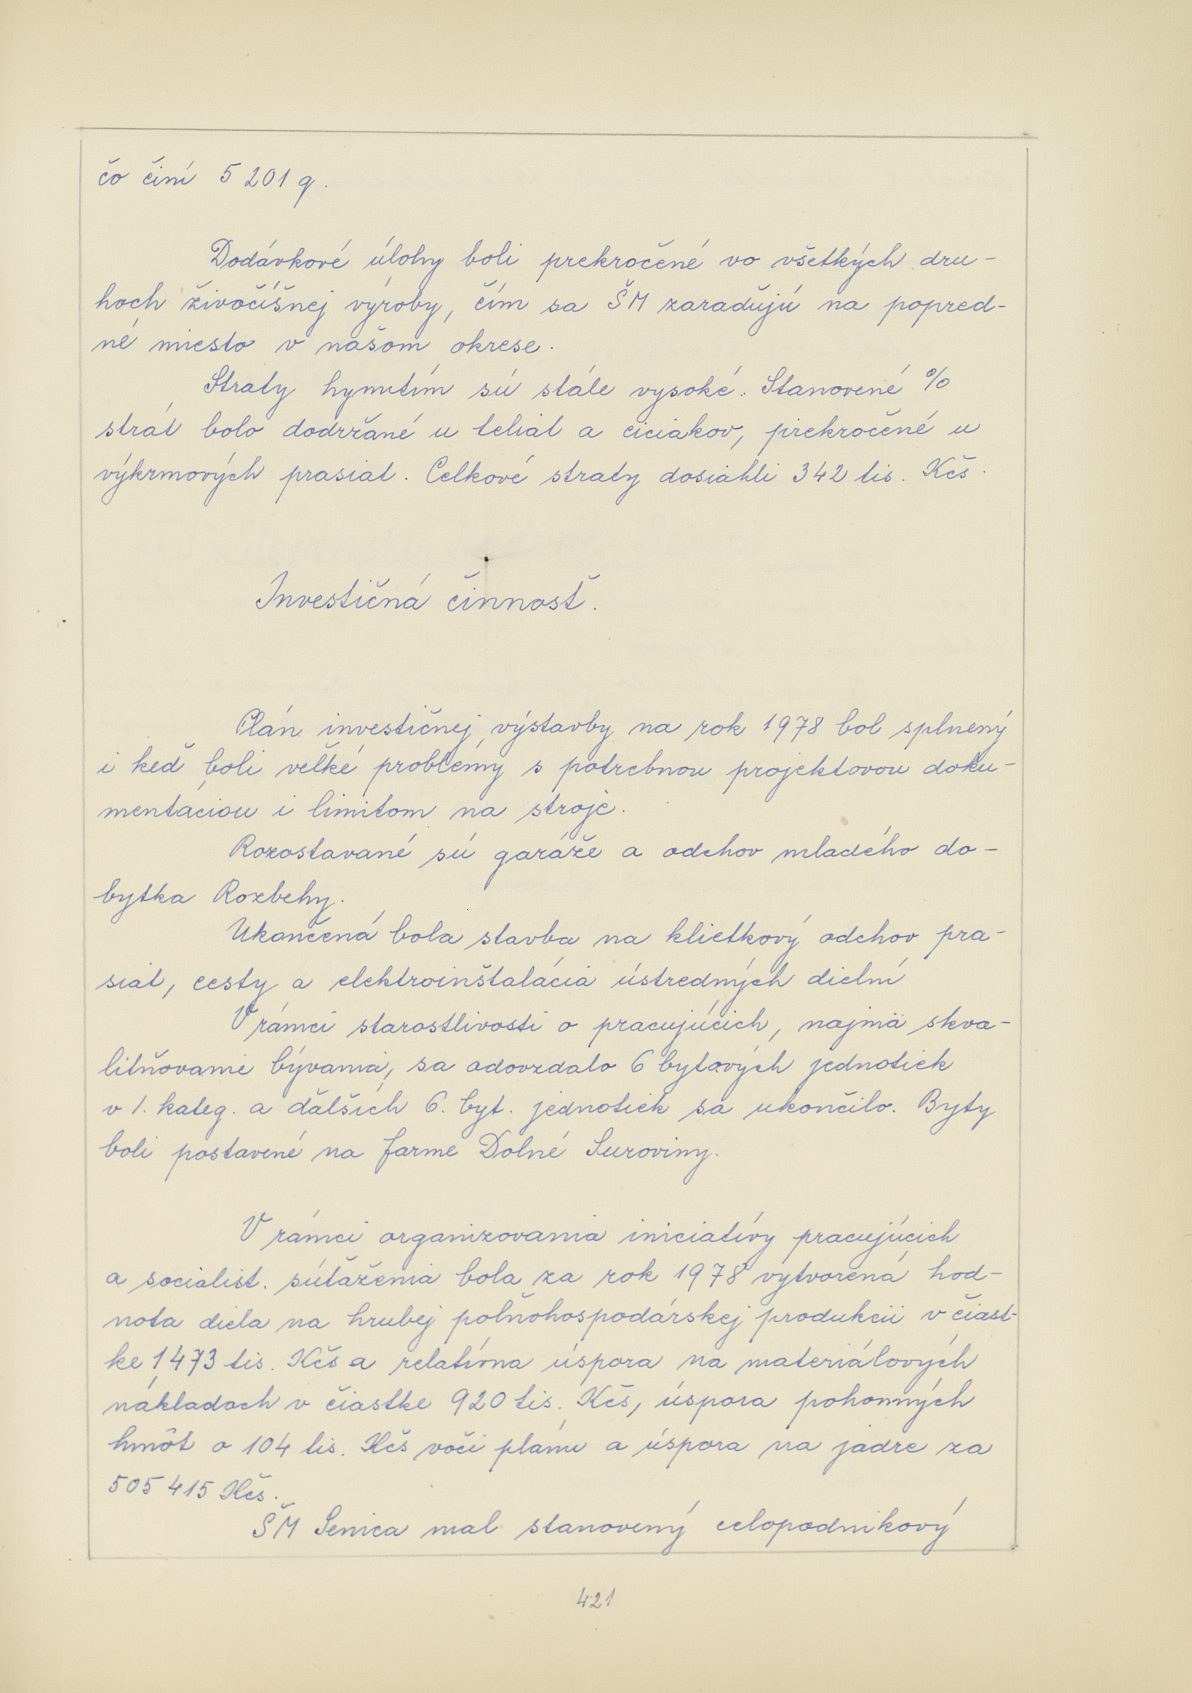 čo činí 5 201 q.
Dodávkové úlohy boli prekročené vo všetkých dru-
hoch živočíšnej výroby, čím sa ŠM zaraďujú na popred-
né miesto v našom okrese.
Straty hynutím sú stále vysoké. Stanovené %
strát bolo dodržané u teliat a ciciakov, prekročené u
výkrmových prasiat. Celkové straty dosiahli 342 tis. Kčs.
Investičná činnosť.
Plán investičnej výstavby na rok 1978 bol splnený
i keď boli veľké problémy s potrebnou projektovou doku-
mentáciou i limitom na stroje.
Rozostavané sú garáže a odchov mladého do-
bytka Rozbehy.
Ukončená bola stavba na klietkový odchov pra-
siat, cesty a elektroinštalácia ústredných dielní
V rámci starostlivosti o pracujúcich, najmä skva-
litňovanie bývania, sa odovzdalo 6 bytových jednotiek
v 1. kateg. a ďalších 6. byt. jednotiek sa ukončilo. Byty
boli postavené na farme Dolné Suroviny.
V rámci organizovania iniciatívy pracujúcich
a socialist. súťaženia bola za rok 1978 vytvorená hod-
nota diela na hrubej poľnohospodárskej produkcii v čiast-
ke 1 473 tis. Kčs a relatívna úspora na materiálových
nákladoch v čiastke 920 tis. Kčs, úspora pohonných
hmôt o 104 tis. Kčs voči plánu a úspora na jadre za
505 415 Kčs.
ŠM Senica mal stanovený celopodnikový
421